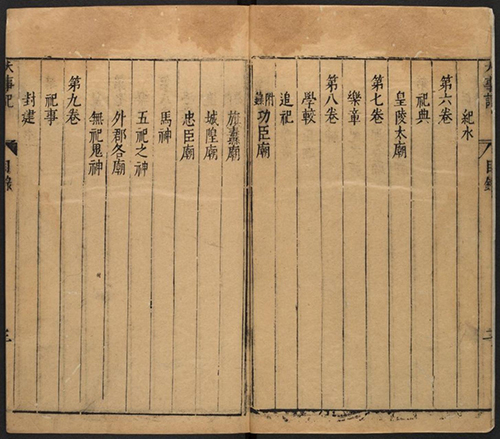 大事記 目錄 二
紀水
第六卷
祀典
皇陵太廟
第七卷
樂章
第八卷
學較
追祀
附錄功臣廟
旗纛廟
城隍廟
忠臣廟
馬神
五祀之神
外郡各廟
無祀鬼神
第九卷
祀事
封建
大事記 目錄 三